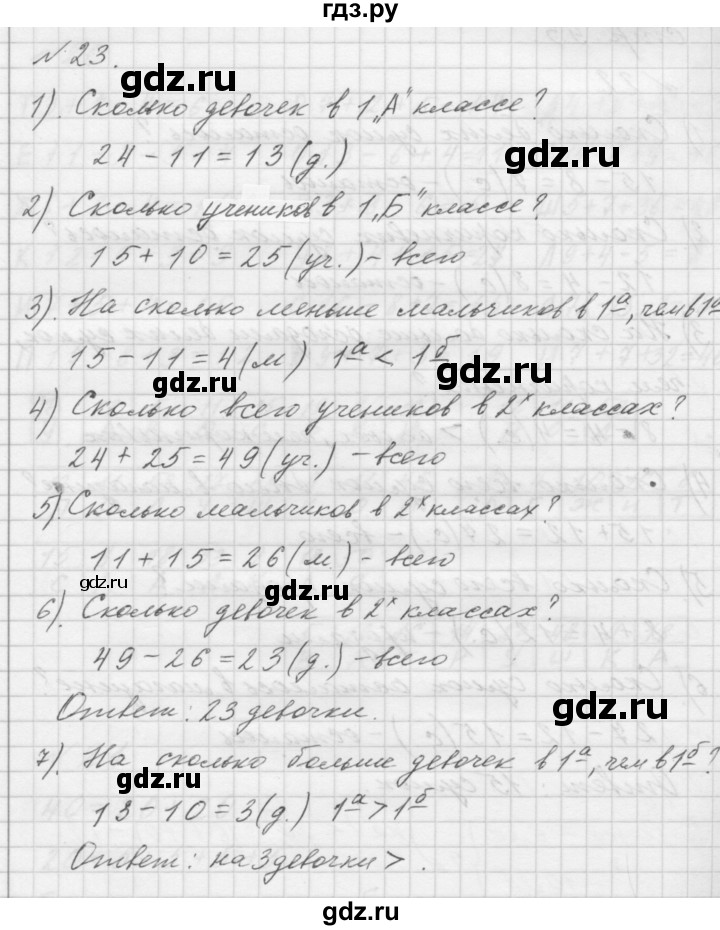 гдз.ру
№ 23.
gdz.ru
gdz.ru
1). Сколько девочек в 1 „А" классе?
24 - 11 = 13 (д.)
gdz.ru
gdz.ru
2). Сколько учеников в 1 „Б" классе?
15 + 10 = 25 (уч.) - всего
3). На сколько меньше мальчиков в 1а, чем в 1а
15 - 11 = 4 (м) 1а < 1б
gdz.ru
gdz.ru
4) Сколько всего учеников в 2х классах?
24 + 25 = 49 (уч.) - всего
5). Сколько мальчиков в 2х классах?
11 + 15 = 26 (м.) - всего
gdz.ru
gdz.ru
6). Сколько девочек в 2х классах?
49 - 26 = 23 (д.) - всего
Ответ: 23 девочки.
gdz.ru
7). На сколько больше девочек в 1а, чем в 1б?
gdz.ru
13 - 10 = 3 (д.) 1а > 1б
gdz.ru
Ответ: на 3 девочки > .
gdz.ru